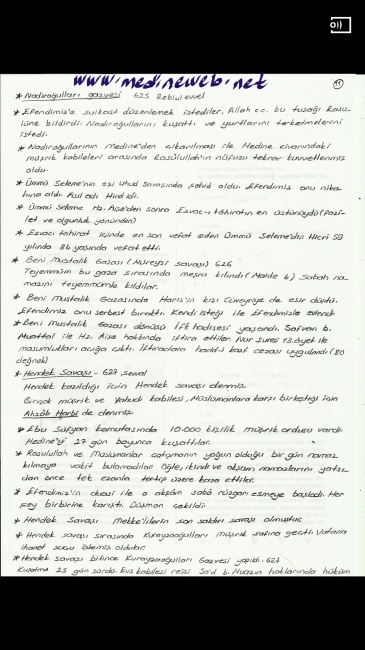 www.medineweb.net
11
* Nadiroğulları gazvesi 625 Rebiulevvel
* Efendimiz'e suikast düzenlemek istediler. Allah c.c. bu tuzağı Rasu-
lüne bildirdi. Nadiroğullarını kuşattı ve yurtlarını terketmelerini
istedi.
* Nadiroğullarının Medine'den çıkarılması ile Medine civarındaki
müşrik kabileleri arasında Rasûlullah'ın nüfuzu tekrar kuvvetlenmiş
oldu.
* Ümmü Seleme'nin eşi Uhud savaşında şehid oldu. Efendimiz onu nika-
hına aldı. Asıl adı Hind idi.
* Ümmü Seleme Hz. Aişe'den sonra Ezvac-ı tahiratın en üstünüydü (fazi-
let ve olgunluk yönünden)
* Ezvacı tahirat içinde en son vefat eden Ümmü Seleme'dir. Hicri 59
yılında 84 yaşında vefat etti.
* Beni Mustalik Gazası (Müreysi savaşı) 626
Teyemmüm bu gaza sırasında meşru kılındı (Maide 6) Sabah na-
mazını teyemmümle kıldılar.
* Beni Mustalik Gazasında Haris'in kızı Cüveyriye de esir düştü.
Efendimiz onu serbest bıraktı. Kendi isteği ile Efendimizle evlendi
* Beni Mustalik Gazası dönüşü İfk hadisesi yaşandı. Safvan b.
Muattal ile Hz. Aişe hakkında iftira ettiler. Nur suresi 13. ayet ile
masumlukları açığa çıktı. İftiracılara hadd-i kazf cezası uygulandı (80
değnek)
* Hendek Savaşı - 627 Şevval
Hendek kazıldığı için Hendek savaşı denmiş.
Birçok müşrik ve Yahudi kabilesi, Müslümanlara karşı birleştiği için
Ahzâb Harbi de denmiş.
* Ebu Süfyan komutasında 10.000 kişilik müşrik ordusu vardı.
Medine'yi 27 gün boyunca kuşattılar.
* Rasulullah ve Müslümanlar çatışmanın yoğun olduğu bir gün namaz
kılmaya vakit bulamadılar. Öğle, ikindi ve akşam namazlarını yatsı-
dan önce tek ezanla tertip üzere kaza ettiler.
* Efendimiz'in duası ile o akşam sabâ rüzgarı esmeye başladı. Her
şey birbirine karıştı. Düşman çekildi.
* Hendek Savaşı Mekke'lilerin son saldırı savaşı olmuştur.
* Hendek savaşı sırasında Kurayzaoğulları müşrik safına geçti. Vatana
ihanet suçu işlemiş oldular.
* Hendek savaşı bitince Kurayzaoğulları Gazvesi yapıldı. 627
Kuşatma 25 gün sürdü. Evs kabilesi reisi Sa'd b. Muazın haklarında hüküm